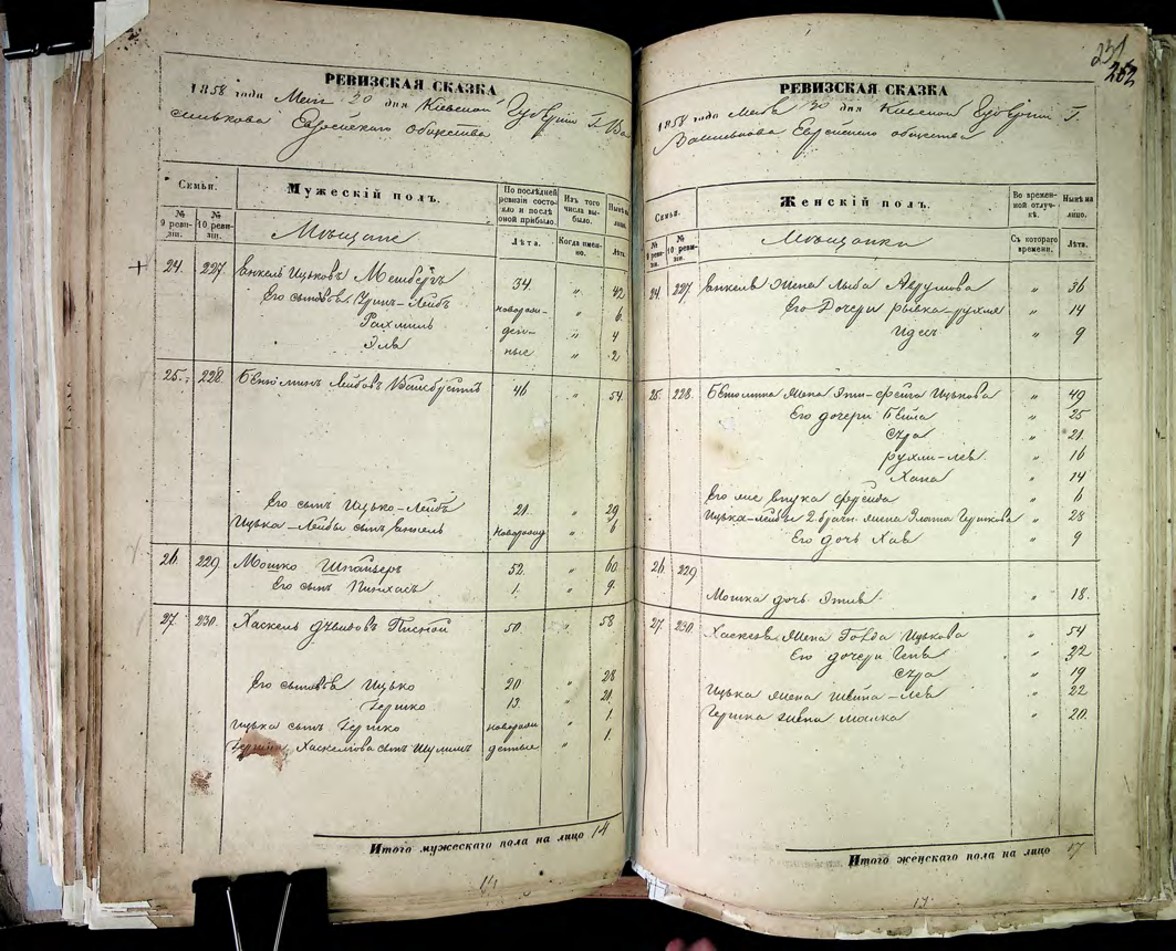 РЕВИЗСКАЯ СКАЗКА
1858 года Мая 20 дня Киевской Губерніи Г. Ва
силькова Еврейскаго общества
Семьи.
Мужескій полъ.
По послѣдней ревизіи состояло и послѣ оной прибыло.
Изъ того числа выбыло.
Нынѣ на лицо.
№ 9 ревизіи.
№ 10 ревизіи.
Мѣщане
Лѣта.
Когда именно.
Лѣта.
24. 227 Янкель Ицьковъ 34. " 42
Его сыновья Лейбъ новорож- " 6
Рахмиль ден- " 4
Эля ные " 2
25. 228. Бенюминъ Лейбовъ 46 " 54
Его сынъ Ицько-Лейбъ 21. " 29
Ицька-Лейбы сынъ Янкель новорожд " 6
26. 229. Мошко Шпаньеръ 52. " 60.
Его сынъ Пинхасъ 1. " 9.
27. 230. Хаскель Писной 50. " 58
Его сыновья Ицько 20 " 28
Гершко 13. " 21.
Ицька сынъ Гершко новорож " 1.
Хаскелева сынъ Шулимъ денные " 1.
Итого мужескаго пола на лицо 14
14
231
202
РЕВИЗСКАЯ СКАЗКА
1858 года Мая 20 дня Киевской Губерніи Г.
Василькова Еврейскаго общества
Семьи.
Женскій полъ.
Во временной отлучкѣ.
Нынѣ на лицо.
№ 9 ревизіи.
№ 10 ревизіи.
Мѣщанки
Съ котораго времени.
Лѣта.
24. 227 Янкеля жена Аврумова " 36
Его Дочери Рывка-Рухля " 14
Идесь " 9
25. 228. Бенюмина жена Эти-Фейга Ицькова " 49
Его дочери Бейла " 25
Сура " 21.
Рухли-Лея " 16
Хана " 14
Его же внука " 6
Ицька-Лейбы 2 брач. жена Злата " 28
Его дочь Хая " 9
26. 229
Мошка дочь " 18.
27. 230. Хаскеля жена Голда Ицькова " 54
Его дочери " 22
Сура " 19
Ицька жена Шейна-Лея " 22
Гершка жена " 20.
Итого женскаго пола на лицо 17
17